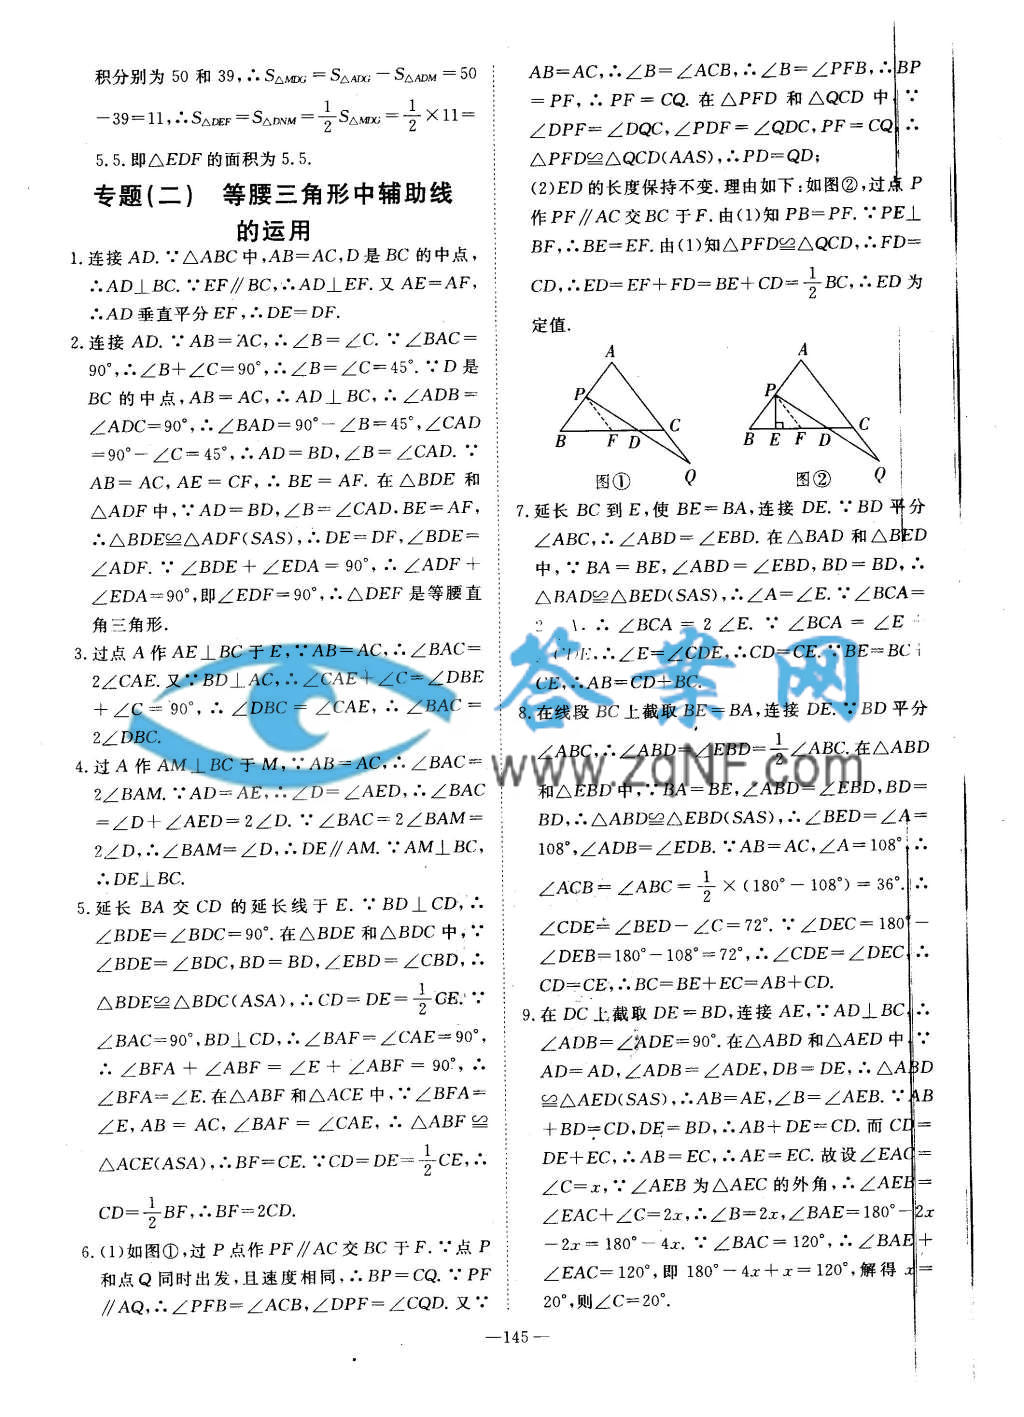 积分别为 50 和 39,∴S△MDG=S△ADG-S△ADM=50
-39=11,∴S△DEF=S△DNM=1/2S△MDG=1/2×11=
5.5.即△EDF 的面积为 5.5.
专题(二) 等腰三角形中辅助线
的运用
1.连接 AD.∵△ABC 中,AB=AC,D 是 BC 的中点,
∴AD⊥BC.∵EF∥BC,∴AD⊥EF.又 AE=AF,
∴AD 垂直平分 EF,∴DE=DF.
2.连接 AD.∵AB=AC,∴∠B=∠C.∵∠BAC=
90°,∴∠B+∠C=90°,∴∠B=∠C=45°.∵D 是
BC 的中点,AB=AC,∴AD⊥BC,∴∠ADB=
∠ADC=90°,∴∠BAD=90°-∠B=45°,∠CAD
=90°-∠C=45°,∴AD=BD,∠B=∠CAD.∵
AB=AC,AE=CF,∴BE=AF.在△BDE 和
△ADF 中,∵AD=BD,∠B=∠CAD.BE=AF,
∴△BDE≌△ADF(SAS),∴DE=DF,∠BDE=
∠ADF.∵∠BDE+∠EDA=90°,∴∠ADF+
∠EDA=90°,即∠EDF=90°,∴△DEF 是等腰直
角三角形.
3.过点 A 作 AE⊥BC 于 E,∵AB=AC,∴∠BAC=
2∠CAE.又∵BD⊥AC,∴∠CAE+∠C=∠DBE
+∠C=90°,∴∠DBC=∠CAE,∴∠BAC=
2∠DBC.
4.过 A 作 AM⊥BC 于 M,∵AB=AC,∴∠BAC=
2∠BAM.∵AD=AE,∴∠D=∠AED,∴∠BAC
=∠D+∠AED=2∠D.∵∠BAC=2∠BAM=
2∠D,∴∠BAM=∠D,∴DE∥AM.∵AM⊥BC,
∴DE⊥BC.
5.延长 BA 交 CD 的延长线于 E.∵BD⊥CD,∴
∠BDE=∠BDC=90°.在△BDE 和△BDC 中,∵
∠BDE=∠BDC,BD=BD,∠EBD=∠CBD,∴
△BDE≌△BDC(ASA),∴CD=DE=1/2CE.∵
∠BAC=90°,BD⊥CD,∴∠BAF=∠CAE=90°,
∴∠BFA+∠ABF=∠E+∠ABF=90°,∴
∠BFA=∠E.在△ABF 和△ACE 中,∵∠BFA=
∠E,AB=AC,∠BAF=∠CAE,∴△ABF≌
△ACE(ASA),∴BF=CE.∵CD=DE=1/2CE,∴
CD=1/2BF,∴BF=2CD.
6.(1)如图①,过 P 点作 PF∥AC 交 BC 于 F.∵点 P
和点 Q 同时出发,且速度相同,∴BP=CQ.∵PF
∥AQ,∴∠PFB=∠ACB,∠DPF=∠CQD.又∵
AB=AC,∴∠B=∠ACB,∴∠B=∠PFB,∴BP
=PF,∴PF=CQ.在△PFD 和△QCD 中,∵
∠DPF=∠DQC,∠PDF=∠QDC,PF=CQ,∴
△PFD≌△QCD(AAS),∴PD=QD;
(2)ED 的长度保持不变.理由如下:如图②,过点 P
作 PF∥AC 交 BC 于 F.由(1)知 PB=PF.∵PE⊥
BF,∴BE=EF.由(1)知△PFD≌△QCD,∴FD=
CD,∴ED=EF+FD=BE+CD=1/2BC,∴ED 为
定值.
A A
P P
B F D C B E F D C
Q Q
图① 图②
7.延长 BC 到 E,使 BE=BA,连接 DE.∵BD 平分
∠ABC,∴∠ABD=∠EBD.在△BAD 和△BED
中,∵BA=BE,∠ABD=∠EBD,BD=BD,∴
△BAD≌△BED(SAS),∴∠A=∠E.∵∠BCA=
∴∠BCA=2∠E.∵∠BCA=∠E
∴∠E=∠CDE,∴CD=CE.∵BE=BC+
CE,∴AB=CD+BC.
8.在线段 BC 上截取 BE=BA,连接 DE.∵BD 平分
∠ABC,∴∠ABD=∠EBD=1/2∠ABC.在△ABD
和△EBD 中,∵BA=BE,∠ABD=∠EBD,BD=
BD,∴△ABD≌△EBD(SAS),∴∠BED=∠A=
108°,∠ADB=∠EDB.∵AB=AC,∠A=108°,∴
∠ACB=∠ABC=1/2×(180°-108°)=36°.∴
∠CDE=∠BED-∠C=72°.∵∠DEC=180°-
∠DEB=180°-108°=72°,∴∠CDE=∠DEC,∴
CD=CE,∴BC=BE+EC=AB+CD.
9.在 DC 上截取 DE=BD,连接 AE,∵AD⊥BC,∴
∠ADB=∠ADE=90°.在△ABD 和△AED 中,∵
AD=AD,∠ADB=∠ADE,DB=DE,∴△ABD
≌△AED(SAS),∴AB=AE,∠B=∠AEB.∵AB
+BD=CD,DE=BD,∴AB+DE=CD.而 CD=
DE+EC,∴AB=EC,∴AE=EC.故设∠EAC=
∠C=x,∵∠AEB 为△AEC 的外角,∴∠AEB=
∠EAC+∠C=2x,∴∠B=2x,∠BAE=180°-2x
-2x=180°-4x.∵∠BAC=120°,∴∠BAE+
∠EAC=120°,即 180°-4x+x=120°,解得 x=
20°,则∠C=20°.
—145—
答案网
www.zqNF.com